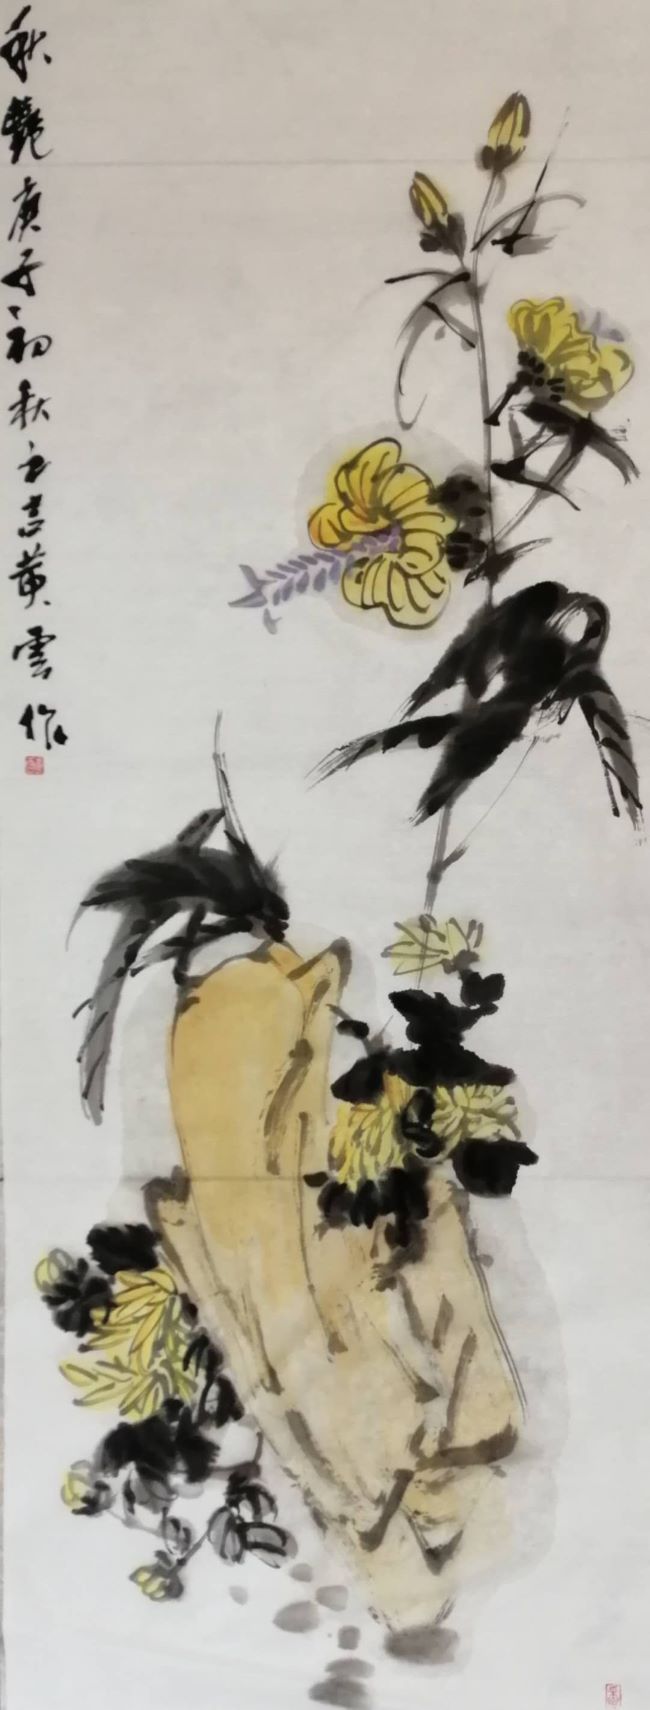 秋艷庚子初秋立志黄雲作